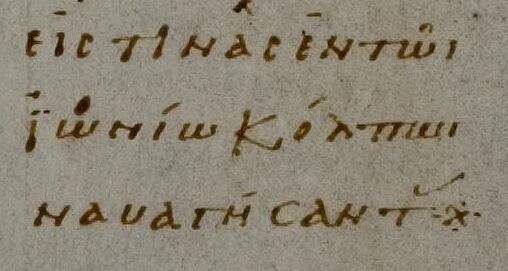 εἴς τινὰς ἐν τῶι
ϊωνίω κόλπωι
ναυαγήσαντ